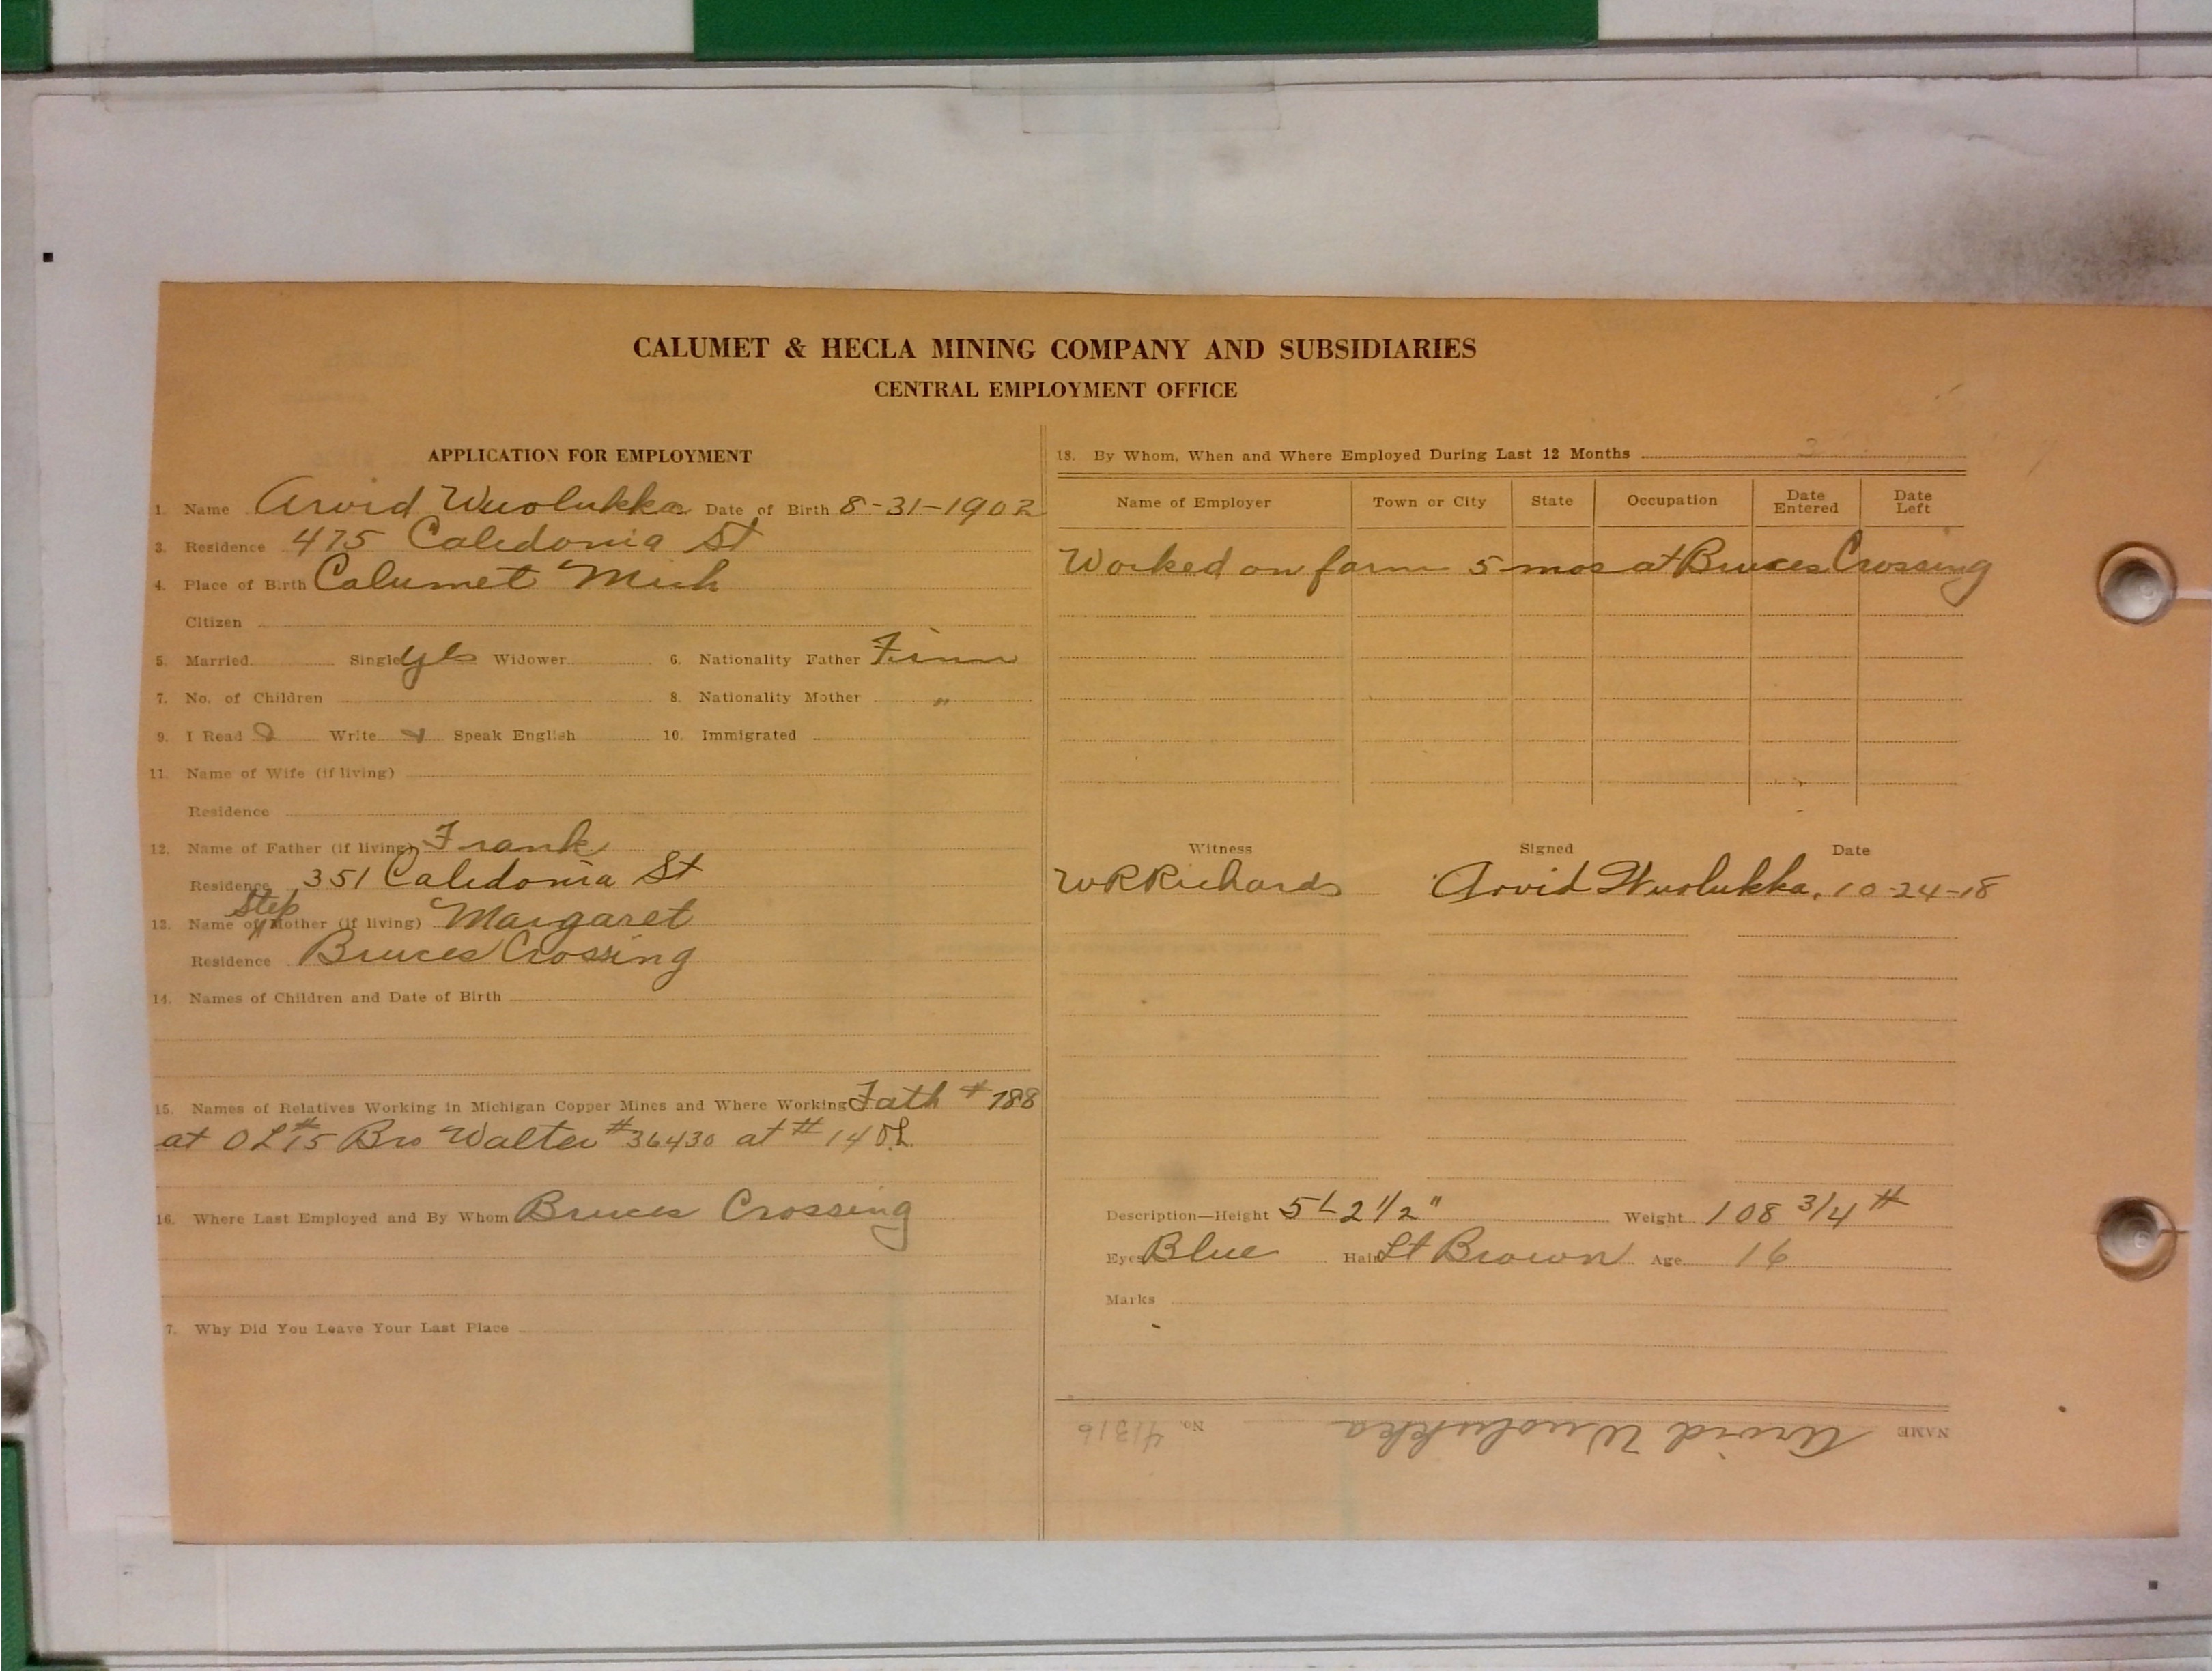 CALUMET & HECLA MINING COMPANY AND SUBSIDIARIES
CENTRAL EMPLOYMENT OFFICE
APPLICATION FOR EMPLOYMENT
1. Name Arvid Wuolukka Date of Birth 8-31-1902
3. Residence 475 Caledonia St
4. Place of Birth Calumet Mich
Citizen
5. Married Single yes Widower 6. Nationality Father Finn
7. No. of Children 8. Nationality Mother "
9. I Read Write Speak English 10. Immigrated
11. Name of Wife (if living)
Residence
12. Name of Father (if living) Frank
Residence 351 Caledonia St
Step
13. Name of Mother (if living) Margaret
Residence Bruces Crossing
14. Names of Children and Date of Birth
15. Names of Relatives Working in Michigan Copper Mines and Where Working Fath # 788
at OL #15 Bro Walter #36430 at # 14 OL
16. Where Last Employed and By Whom Bruces Crossing
7. Why Did You Leave Your Last Place
18. By Whom, When and Where Employed During Last 12 Months 3
Name of Employer Town or City State Occupation Date Entered Date Left
Worked on farm 5 mos at Bruces Crossing
Witness Signed Date
WR Richards Arvid Wuolukka, 10-24-18
Description—Height 5' 2 1/2" Weight 108 3/4 #
Eyes Blue Hair Lt Brown Age 16
Marks
NAME Arvid Wuolukka No. 41316